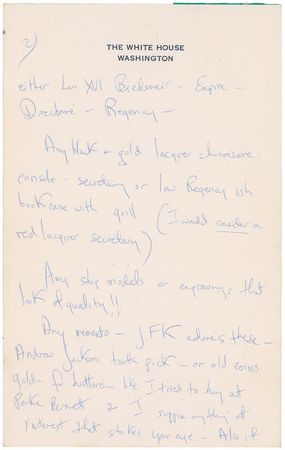 2)
THE WHITE HOUSE
WASHINGTON
either Louis XVI Biedmeir - Empire -
Directoire - Regency -
Any black + gold lacquer chinoiserie
console - secretary or low Regency ish
bookcase with grill (I would consider a
red lacquer secretary)
Any ship models or engravings that
look of quality!!
Any memento - JFK adores these -
Andrew Jacksons tooth pick - or old coins
gold - for buttons - like I tried to buy at
Parke Bernet & I suppose anything of
interest that strikes your eye - Also if